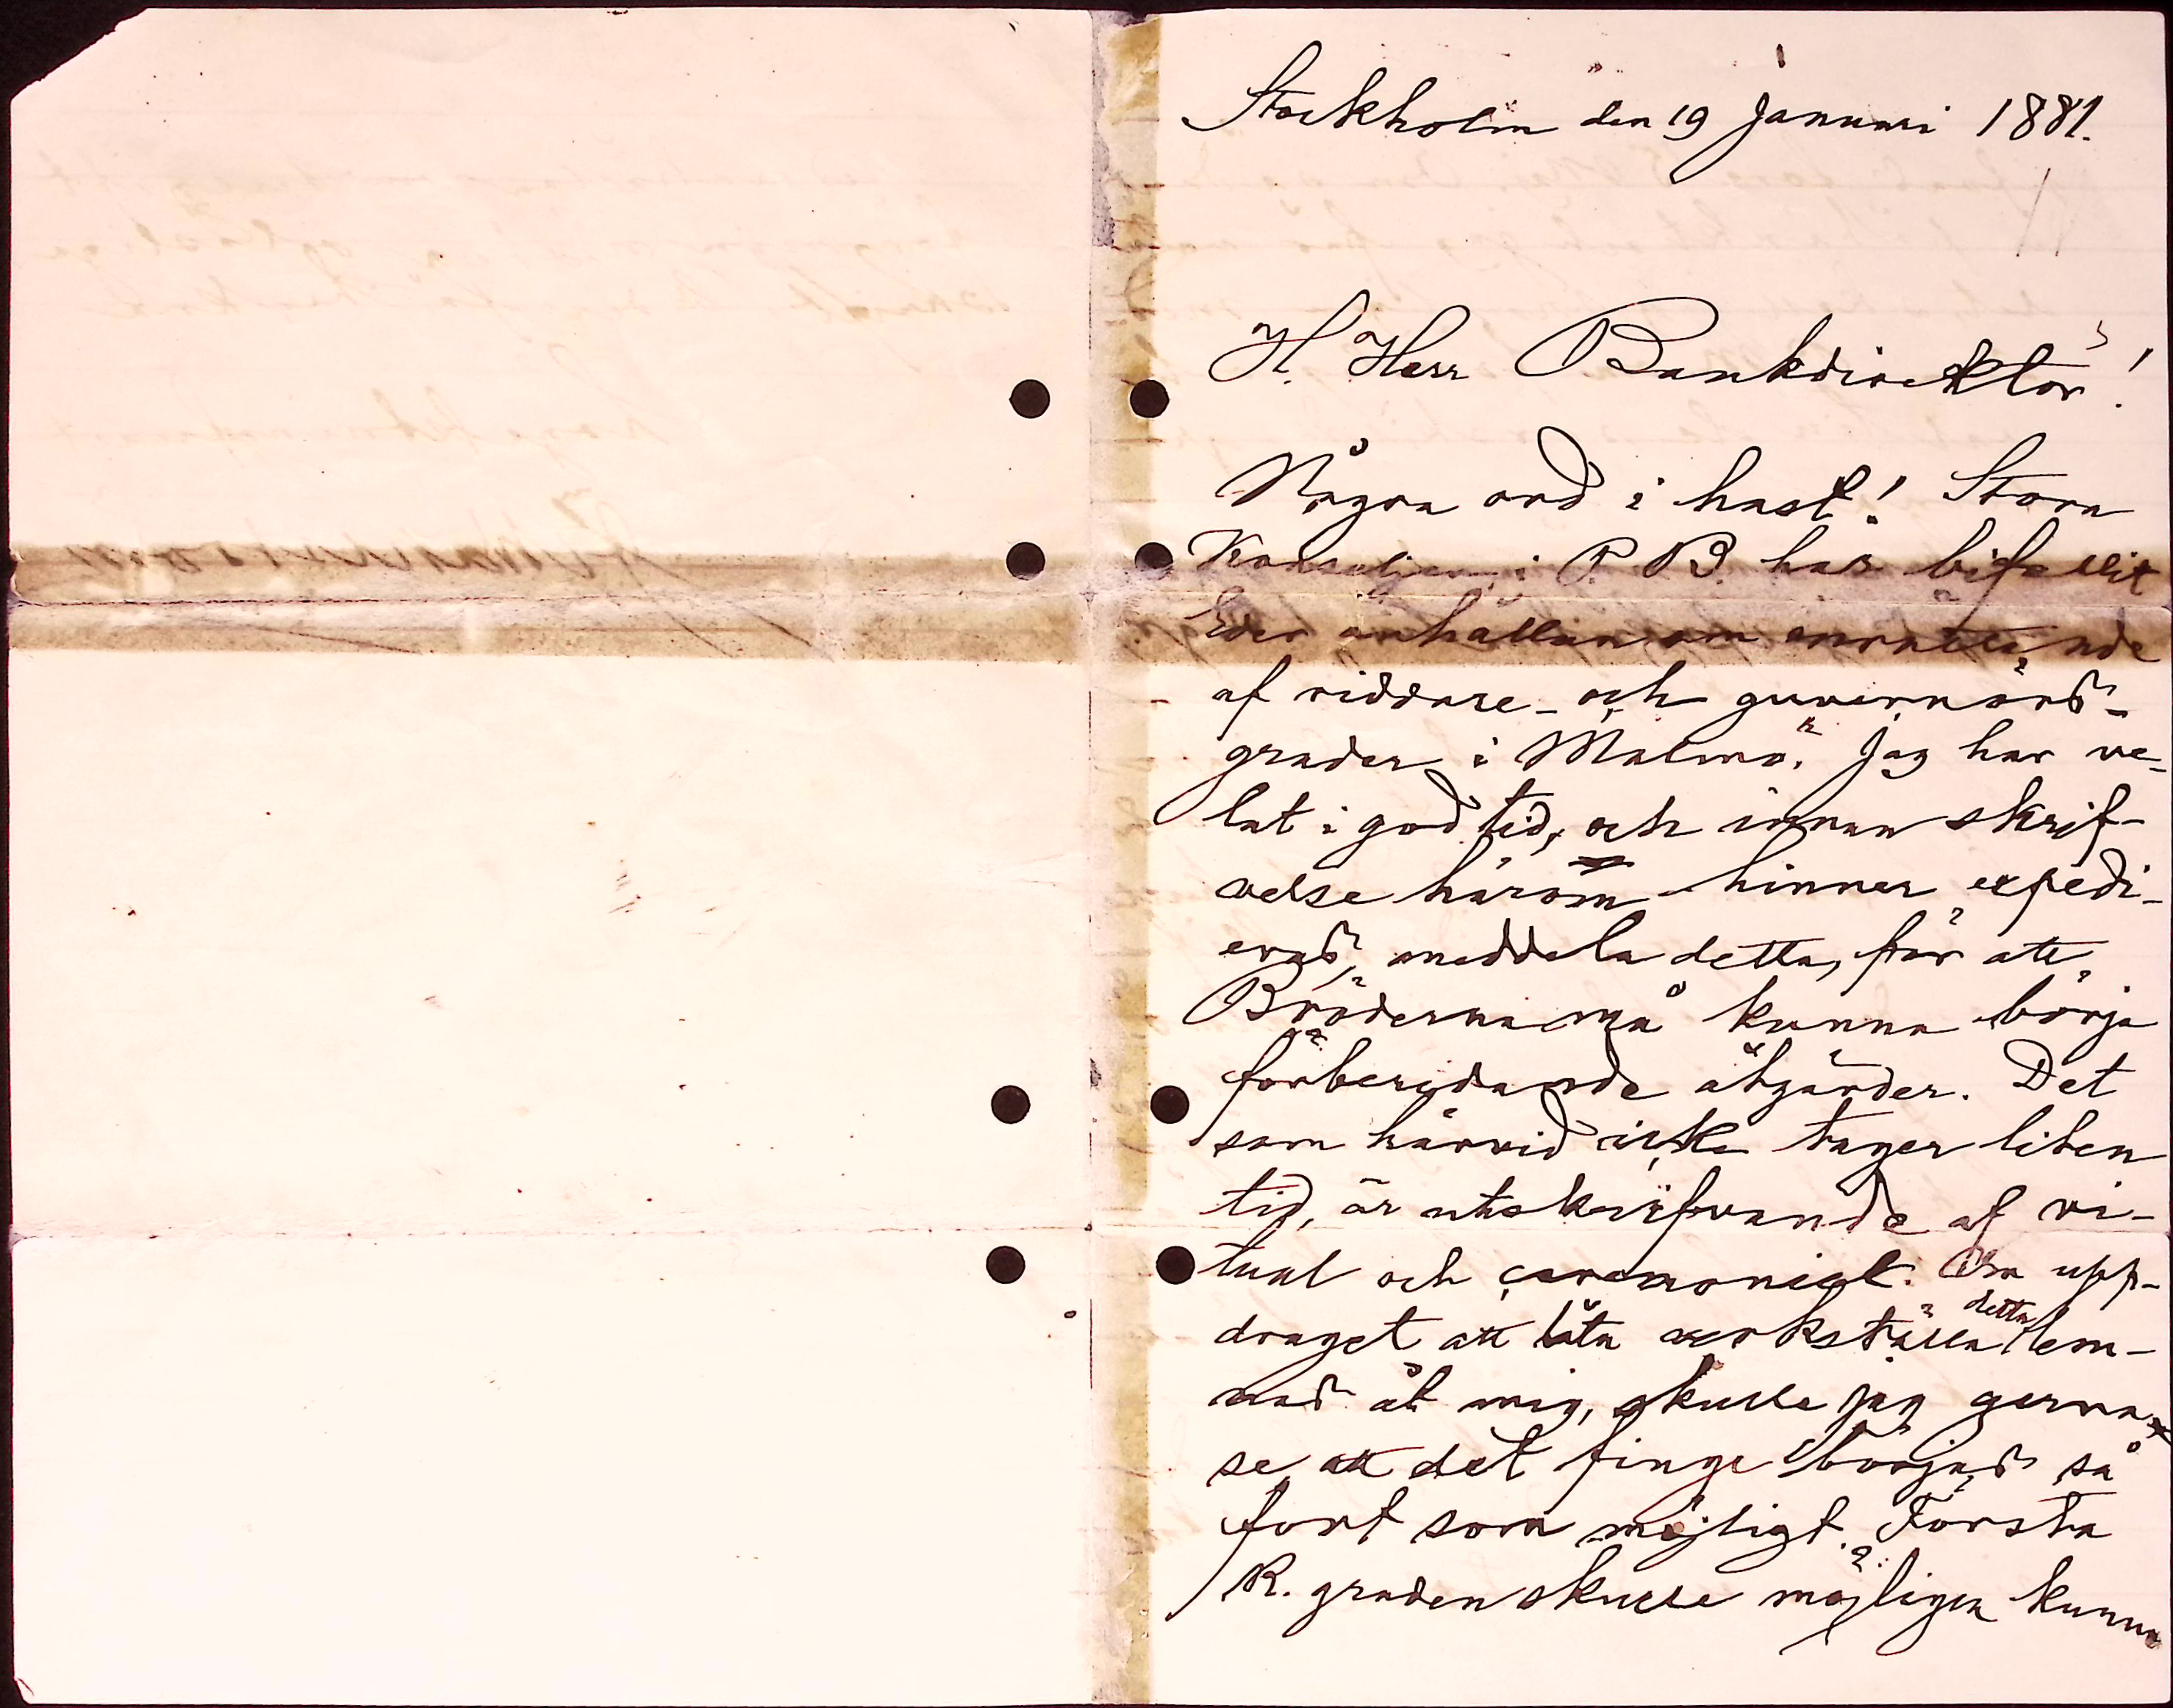 Stockholm den 19 Januari 1881.
H. Herr Bankdirektör!
Några ord i hast! Stora
Konseljen i P. B. har bifallit
Eder anhållan om inrättande
af riddare- och guvernörs-
grader i Malmö. Jag har ve-
lat i god tid, och innan skrif-
velse härom hinner expedi-
eras, meddela detta, för att
Bröderna må kunna börja
förberedande åtgärder. Det
som härvid icke tager liten
tid, är utskrifvande af ri-
tual och ceremoniel. Om upp-
draget att låta verkställa detta lem-
nas åt mig, skulle jag gerna
se att det finge börjas så
fort som möjligt. Första
R. graden skulle möjligen kunna